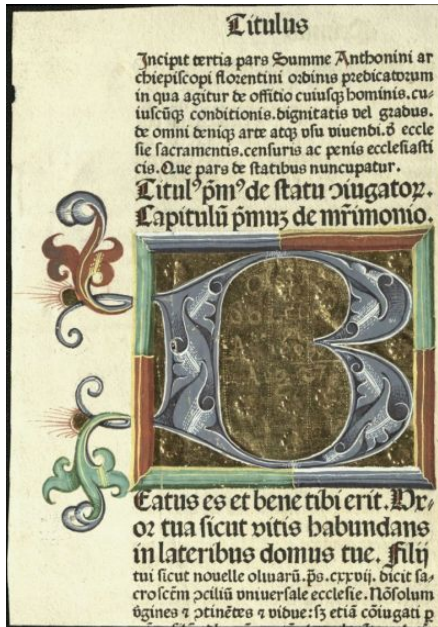 Titulus
Incipit tertia pars Summe Anthonini ar
chiepiscopi florentini ordinis predicatorum
in qua agitur de offitio cuiusqꝫ hominis. cu⸗
iuscūqꝫ conditionis. dignitatis vel gradus.
de omni deniqꝫ arte atqꝫ vsu viuendi. ð eccle
sie sacramentis. censuris ac penis ecclesiasti
cis. Que pars de statibus nuncupatur.
Titulꝰ pm̄ꝰ de statu ↄiugatoꝝ.
Capitulū pm̄uꝫ de mr̄imonio.
B
Eatus es et bene tibi erit. Vx⸗
or tua sicut vitis habundans
in lateribus domus tue. Filij
tui sicut nouelle oliuarū. ps̄. cxxvij. dicit sa⸗
croscēm ↄciliū vniuersale ecclesie. Nōsolum
v̄gines ⁊ ↄtinētes ⁊ vidue: sꝫ etiā cōiugati ꝑ